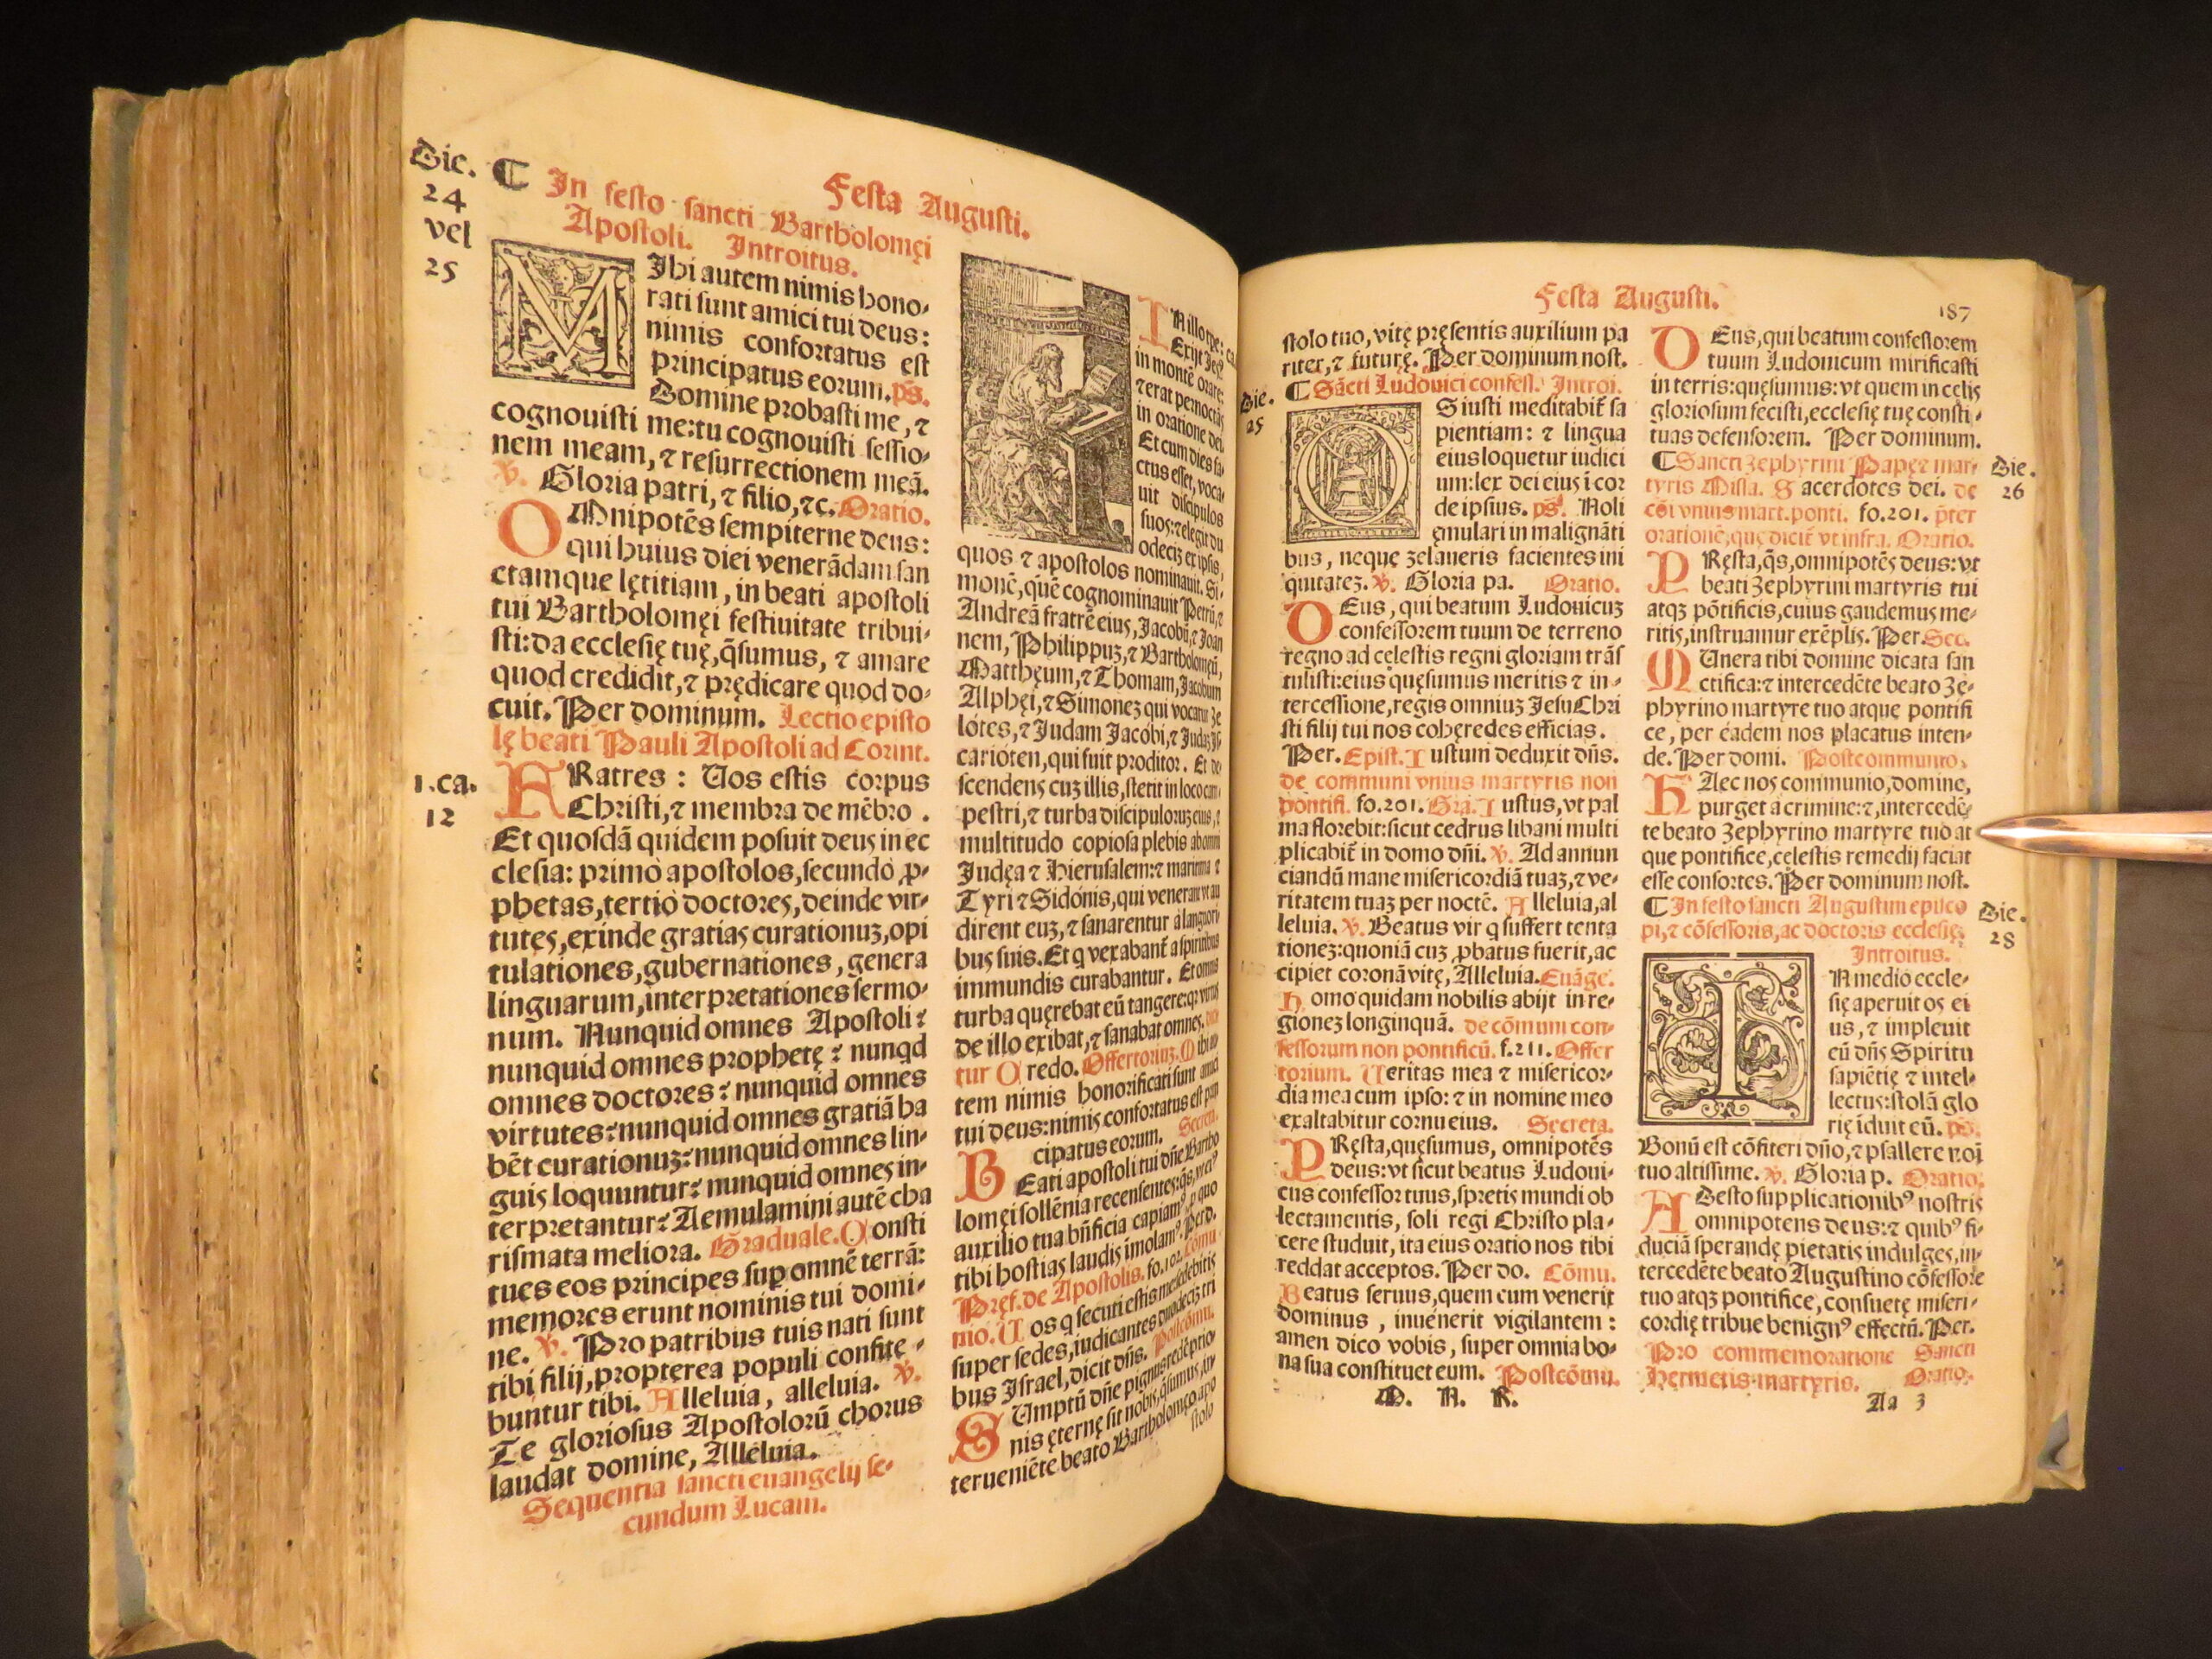 Festa Augusti.
Die.
24
vel
25
¶ In festo sancti Bartholomęi
Apostoli. Introitus.
MIhi autem nimis hono-
rati sunt amici tui deus:
nimis confortatus est
principatus eorum. ps.
Domine probasti me, ⁊
cognouisti me: tu cognouisti sessio-
nem meam, ⁊ resurrectionem meā.
℣. Gloria patri, ⁊ filio, ⁊c. Oratio.
OMnipotēs sempiterne deus:
qui huius diei venerādam san
ctamque lętitiam, in beati apostoli
tui Bartholomęi festiuitate tribui-
sti: da ecclesię tuę, q̄sumus, ⁊ amare
quod credidit, ⁊ prędicare quod do-
cuit. Per dominum. Lectio episto
lę beati Pauli Apostoli ad Corint.
1.ca.
12
FRatres: Uos estis corpus
Christi, ⁊ membra de mēbro.
Et quosdā quidem posuit deus in ec
clesia: primò apostolos, secundò ꝓ-
phetas, tertiò doctores, deinde vir-
tutes, exinde gratias curationuz, opi
tulationes, gubernationes, genera
linguarum, interpretationes sermo-
num. Nunquid omnes Apostoli?
nunquid omnes prophetę? nunqd
omnes doctores? nunquid omnes
virtutes? nunquid omnes gratiā ha
bēt curationuz? nunquid omnes lin-
guis loquuntur? nunquid omnes in-
terpretantur? Aemulamini autē cha
rismata meliora. Graduale. Consti
tues eos principes sup omnē terrā:
memores erunt nominis tui domi-
ne. ℣. Pro patribus tuis nati sunt
tibi filij, propterea populi confitę-
buntur tibi. Alleluia, alleluia. ℣.
Te gloriosus Apostolorū chorus
laudat domine, Alleluia.
Sequentia sancti euangelij se-
cundum Lucam.
IN illo tpe:
Exijt Jes
in montē orare:
⁊ erat pernoctās
in oratione dei.
Et cum dies fa-
ctus esset, voca-
uit discipulos
suos: ⁊ elegit du
odecim ex ipsis,
quos ⁊ apostolos nominauit. Si-
monē, quē cognominauit Petrū, ⁊
Andreā fratrē eius, Jacobū, ⁊ Joan
nem, Philippuz, ⁊ Bartholomęū,
Matthęum, ⁊ Thomam, Jacobum
Alphęi, ⁊ Simonez qui vocatur Ze
lótes, ⁊ Judam Jacóbi, ⁊ Judaz Is-
carióten, qui fuit proditor. Et de
scendens cuz illis, stetit in loco cam
pestri, ⁊ turba discipuloruz eius, ⁊
multitudo copiosa plebis ab omni
Judęa ⁊ Hierusalem: ⁊ maritima ⁊
Tyri ⁊ Sidónis, qui venerant vt au
dirent euz, ⁊ sanarentur à languori
bus suis. Et q vexabant̄ a spiritibus
immundis curabantur. Et omnis
turba quęrebat eū tangere: qz virtus
de illo exibat, ⁊ sanabat omnes. Dici
tur Credo. Offertoriuz. Mihi au
tem nimis honorificati sunt amici
tui deus: nimis confortatus est prin
cipatus eorum. Secret.
BEati apostoli tui dn̄e Bartho
lomęi sollénia recensentes: q̄s, vt ei⁹
auxilio tua bn̄ficia capiam⁹, ꝓ quo
tibi hostias laudis imolam⁹. Per d.
Pręf. de Apostolis. fo.102. Cōmu
nio. Uos q secuti estis me, sedebitis
super sedes, iudicantes duodecīz tri
bus Israel, dicit dn̄s. Postcōmu.
SUmptū dn̄e pignus redēptio
nis ęternę sit nobis, q̄sumus, in-
terueniēte beato Bartholomęo apo
stolo
Festa Augusti.
187
stolo tuo, vitę pręsentis auxilium pa
riter, ⁊ futurę. Per dominum nost.
Die.
25
¶ Sācti Ludouici confess. Introi.
OS iusti meditabit̄ sa
pientiam: ⁊ lingua
eius loquetur iudici
um: lex dei eius i cor
de ipsius. ps. Noli
ęmulari in malignāti
bus, neque zelaueris facientes ini
quitatez. ℣. Gloria pa. Oratio.
DEus, qui beatum Ludouicuz
confessorem tuum de terreno
regno ad cęlestis regni gloriam trās
tulisti: eius quęsumus meritis ⁊ in-
tercessione, regis omniuz Jesu Chri
sti filij tui nos coheredes efficias.
Per. Epist. Iustum deduxit dn̄s.
de communi vnius martyris non
pontifi. fo.201. Gra. Iustus, vt pal
ma florebit: sicut cedrus libani multi
plicabit̄ in domo dn̄i. ℣. Ad annun
ciandū mane misericordiā tuaz, ⁊ ve-
ritatem tuaz per noctē. Alleluia, al
leluia. ℣. Beatus vir q suffert tenta
tionez: quoniā cuz ꝓbatus fuerit, ac
cipiet coronā vitę, Alleluia. Euāge.
Homo quidam nobilis abijt in re-
gionez longinquā. de cōmuni con-
fessorum non pontificū. f.211. Offer
torium. Ueritas mea ⁊ misericor-
dia mea cum ipso: ⁊ in nomine meo
exaltabitur cornu eius. Secreta.
PRęsta, quęsumus, omnipotēs
deus: vt sicut beatus Ludoui-
cus confessor tuus, spretis mundi ob
lectamentis, soli regi Christo pla-
cere studuit, ita eius oratio nos tibi
reddat acceptos. Per do. Cōmu.
Beatus seruus, quem cum venerit
dominus, inuenerit vigilantem:
amen dico vobis, super omnia bo-
na sua constituet eum. Postcōmu.
M. N. R.
DEus, qui beatum confessorem
tuum Ludouicum mirificasti
in terris: quęsumus: vt quem in cęlis
gloriosum fecisti, ecclesię tuę consti-
tuas defensorem. Per dominum.
Die.
26
¶ Sancti Zephyrini Papę ⁊ mar-
tyris Missa. Sacerdotes dei. de
cōi vnius mart. ponti. fo.201. pter
orationē, quę dicit̄ vt infra. Oratio.
PRęsta, q̄s, omnipotēs deus: vt
beati Zephyrini martyris tui
atqz pōtificis, cuius gaudemus me-
ritis, instruamur exēplis. Per. Sec.
MUnera tibi domine dicata san
ctifica: ⁊ intercedēte beato Ze-
phyrino martyre tuo atque pontifi
ce, per éadem nos placatus inten-
de. Per domi. Postcommunio.
HAec nos communio, domine,
purget à crimine: ⁊, intercedē-
te beato Zephyrino martyre tuo at
que pontifice, cęlestis remedij faciat
esse consortes. Per dominum nost.
Die.
28
¶ In festo sancti Augustini episco
pi, ⁊ cōfessoris, ac doctoris ecclesię.
Introitus.
IN medio eccle-
się aperuit os ei
us, ⁊ impleuit
eū dn̄s Spiritu
sapiētię ⁊ intel-
lectus: stolā glo
rię iduit eū. ps.
Bonū est cōfiteri dn̄o, ⁊ psallere noi
tuo altissime. ℣. Gloria p. Oratio.
ADesto supplicationib⁹ nostris
omnipotens deus: ⁊ quib⁹ fi-
duciā sperandę pietatis indulges, in-
tercedēte beato Augustino cōfessore
tuo atqz pontifice, consuetę miseri-
cordię tribue benign⁹ effectū. Per.
Pro commemoratione Sancti
Hermetis martyris. Oratio.
Aa 3